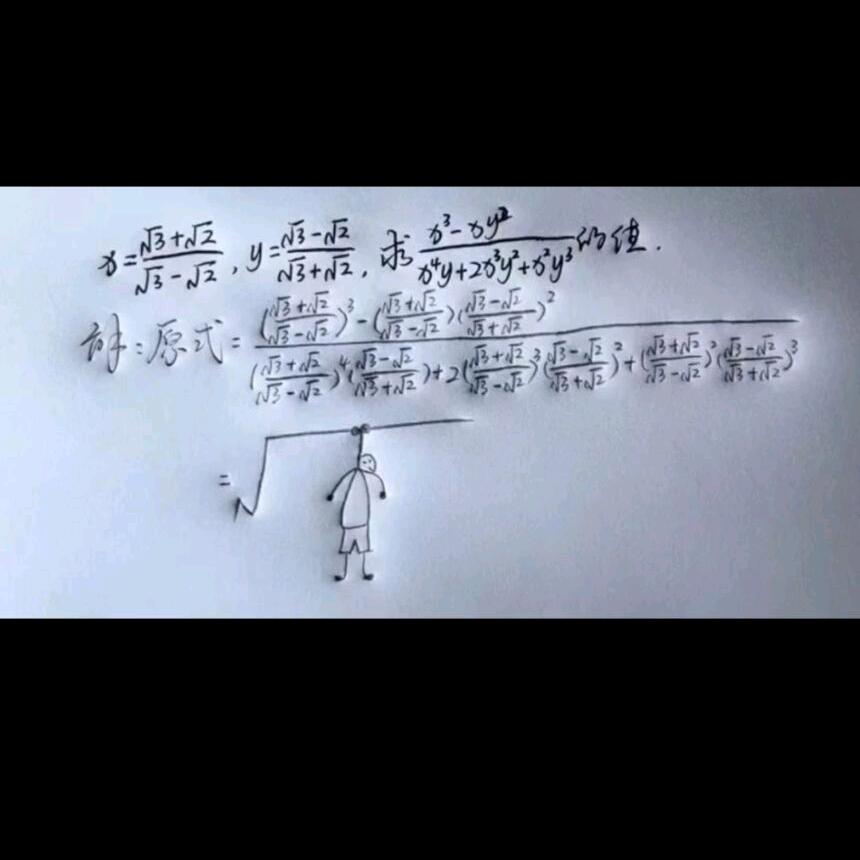 x=(√3+√2)/(√3-√2), y=(√3-√2)/(√3+√2), 求 (x³-xy²)/(x⁴y+2x³y²+x²y³) 的值.
解:原式=(((√3+√2)/(√3-√2))³-((√3+√2)/(√3-√2))((√3-√2)/(√3+√2))²)/(((√3+√2)/(√3-√2))⁴((√3-√2)/(√3+√2))+2((√3+√2)/(√3-√2))³((√3-√2)/(√3+√2))²+((√3+√2)/(√3-√2))²((√3-√2)/(√3+√2))³)
=√